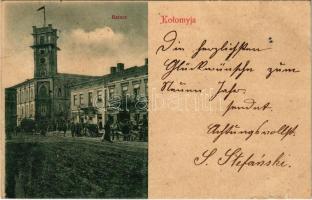 Ratusz
Kołomyja
Die herzlichsten
Glückwünsche zum
Neuen Jahr
sendet
Achtungsvollst.
S. Stefański.